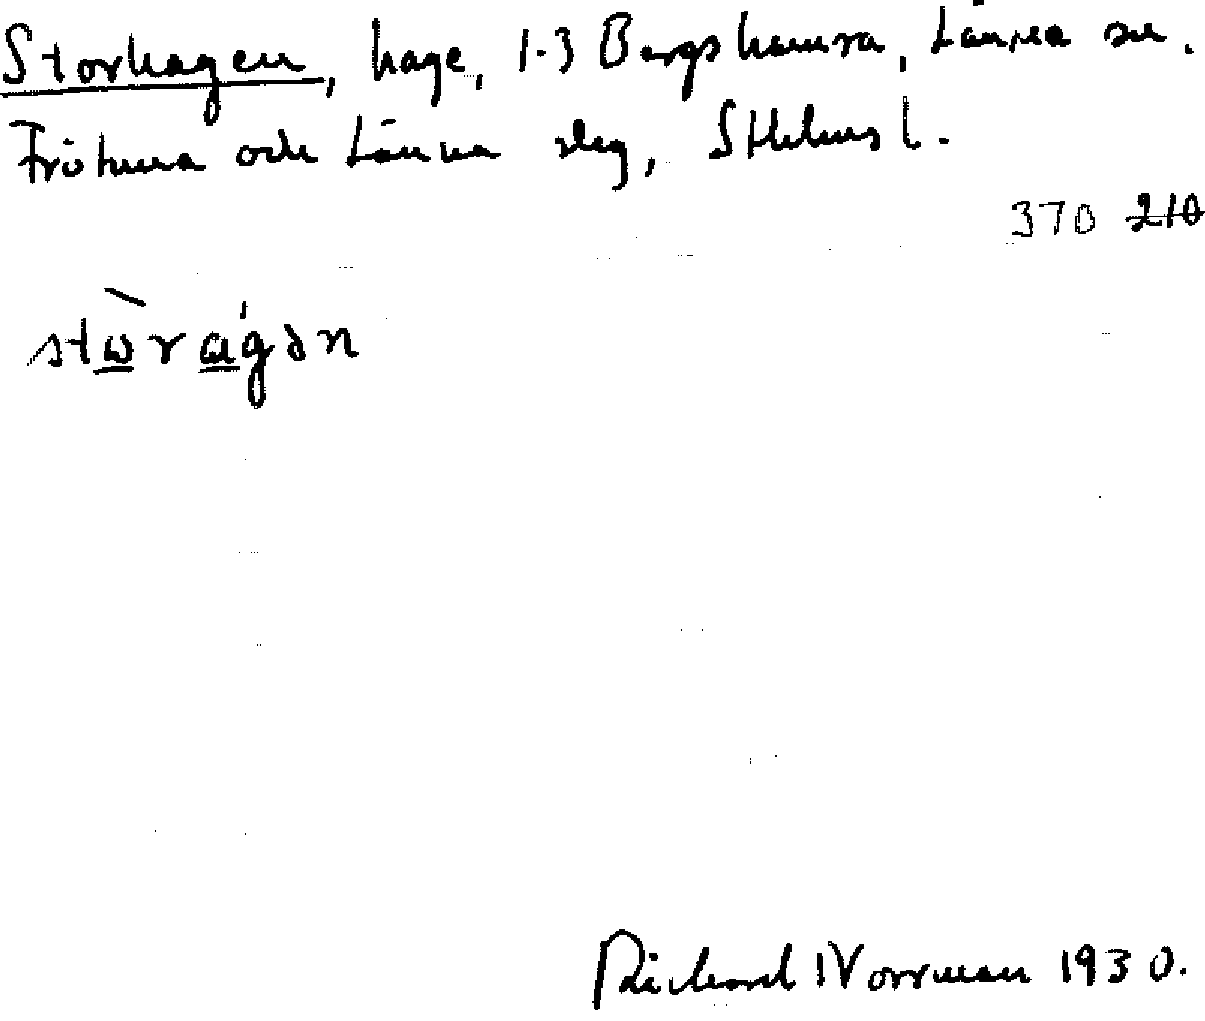 Storhagen, hage, 1-3 Bergshamra, Länna sn.
Frötuna och Länna slg, Sthlms l.
370 210
stὼrágən
Richard Norrman 1930.